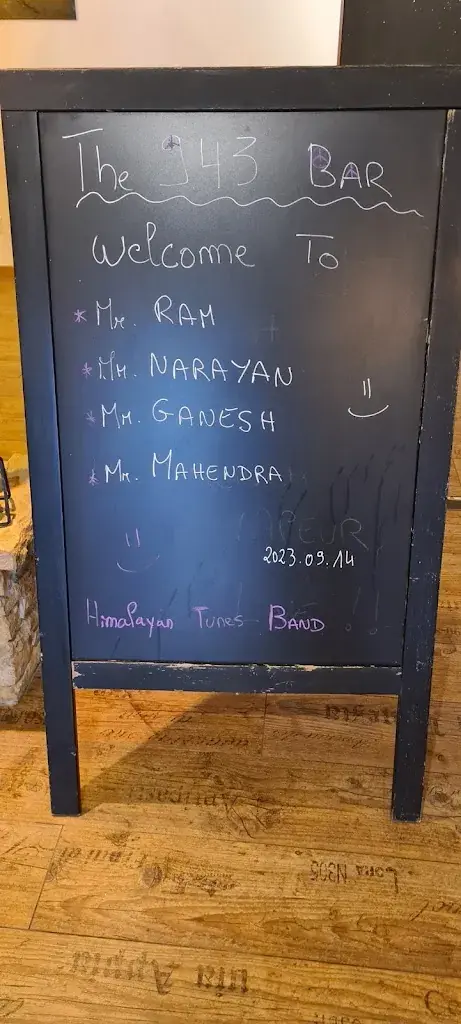 The 943 BAR
Welcome To
* Mr. RAM
* Mr. NARAYAN
* Mr. GANESH
* Mr. MAHENDRA
2023.09.14
Himalayan Tunes BAND
Lons N305
via Appia